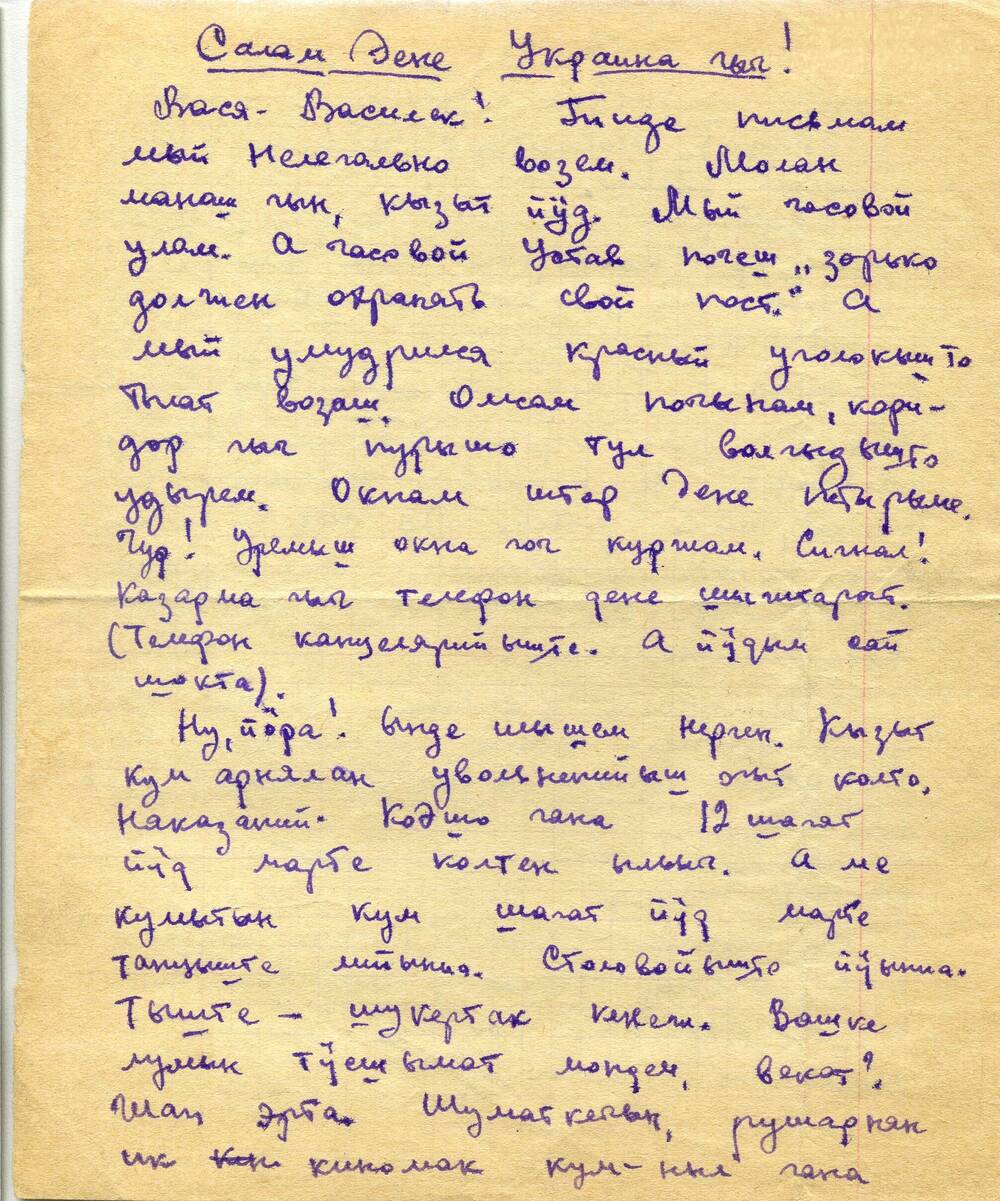 Салам дене Украина гыч!
Вася-Василек! Тиде письмам
мый нелегально возем. Молан
манаш гын, кызыт йӱд. Мый часовой
улам. А часовой Устав почеш „зорько
должен охранять свой пост." А
мый умудрился красный уголокышто
тылат возаш. Омсам почынам, кори-
дор гыч пурышо тул волгыдышто
удырем. Окнам штор дене петырыме.
Чуд! Уремыш окна гоч куржам. Сигнал!
Казарма гыч телефон дене
(Телефон канцелярийыште. А йӱдым сай
шокта).
Ну, йӧра! Ынде шышем нерген. Кызыт
кум арнялан увольненийыш огыт колто.
Наказаний. Кодшо гана 12 шагат
йӱд марте колтен ыльыч. А ме
кумытын кум шагат йӱд марте
танцыште лийынна. Столовойыште йӱынна.
Тыште – шукертак кеҥеж. Вашке
лумын тӱсшымат мондем, векат?
Жап эрта. Шуматкечын, рушарнян
ик киномак кум-ныл гана